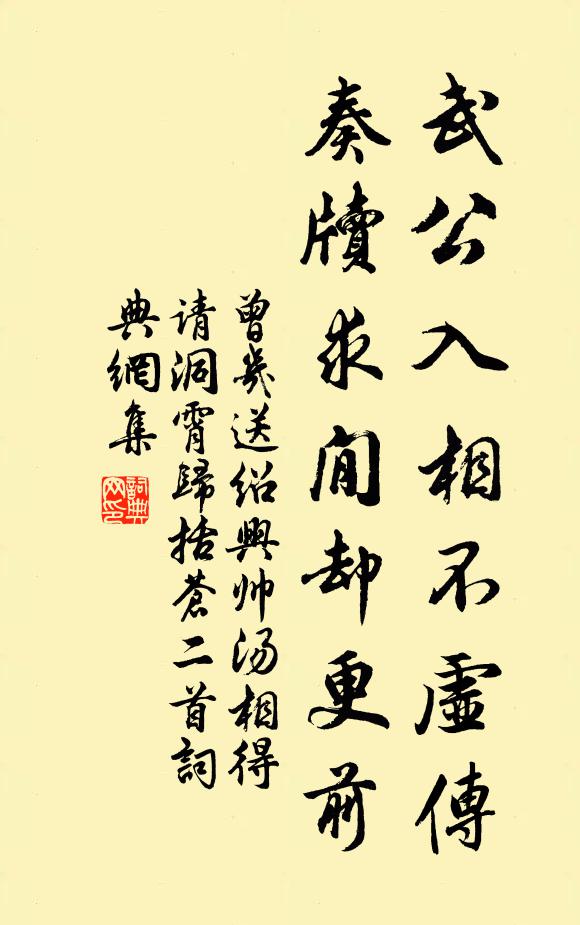 武公入相不虛傳
奏牘求閒却更前
曾幾送紹興帅湯相得
请洞霄歸括蒼二首詞
典網集
詞典網印